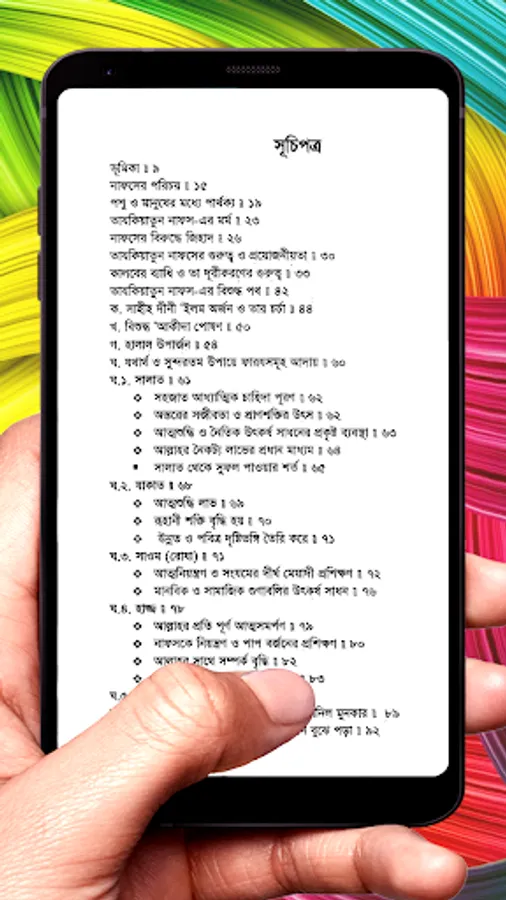 সূচিপত্র
ভূমিকা ॥ ৯
নাফসের পরিচয় ॥ ১৫
পশু ও মানুষের মধ্যে পার্থক্য ॥ ১৯
তাযকিয়াতুন নাফস-এর মর্ম ॥ ২৩
নাফসের বিরুদ্ধে জিহাদ ॥ ২৬
তাযকিয়াতুন নাফসের গুরুত্ব ও প্রয়োজনীয়তা ॥ ৩০
কালবের ব্যাধি ও তা দূরীকরণের গুরুত্ব ॥ ৩৩
তাযকিয়াতুন নাফস-এর বিশুদ্ধ পথ ॥ ৪২
ক. সাহীহ দীনী 'ইলম অর্জন ও তার চর্চা ॥ ৪৪
খ. বিশুদ্ধ 'আকীদা পোষণ ॥ ৫০
গ. হালাল উপার্জন ॥ ৫৪
ঘ. যথার্থ ও সুন্দরতম উপায়ে ফারযসমূহ আদায় ॥ ৬০
ঘ.১. সালাত ॥ ৬১
❖ সহজাত আধ্যাত্মিক চাহিদা পূরণ ॥ ৬২
❖ অন্তরের সজীবতা ও প্রাণশক্তির উৎস ॥ ৬২
❖ আত্মশুদ্ধি ও নৈতিক উৎকর্ষ সাধনের প্রকৃষ্ট ব্যবস্থা ॥ ৬৩
❖ আল্লাহর নৈকট্য লাভের প্রধান মাধ্যম ॥ ৬৪
▪ সালাত থেকে সুফল পাওয়ার শর্ত ॥ ৬৫
ঘ.২. যাকাত ॥ ৬৮
❖ আত্মশুদ্ধি লাভ ॥ ৬৯
❖ রূহানী শক্তি বৃদ্ধি হয় ॥ ৭০
❖ উন্নত ও পবিত্র দৃষ্টিভঙ্গি তৈরি করে ॥ ৭১
ঘ.৩. সাওম (রোযা) ॥ ৭১
❖ আত্মনিয়ন্ত্রণ ও সংযমের দীর্ঘ মেয়াদী প্রশিক্ষণ ॥ ৭২
❖ মানবিক ও সামাজিক গুণাবলির উৎকর্ষ সাধন ॥ ৭৬
ঘ.৪. হাজ্জ ॥ ৭৮
❖ আল্লাহর প্রতি পূর্ণ আত্মসমর্পণ ॥ ৭৯
❖ নাফসকে নিয়ন্ত্রণ ও পাপ বর্জনের প্রশিক্ষণ ॥ ৮০
❖ আল্লাহর সাথে সম্পর্ক বৃদ্ধি ॥ ৮২
৮৩
ঘ.৫
নিল মুনকার ॥ ৮৯
বুঝে পড়া ॥ ৯২